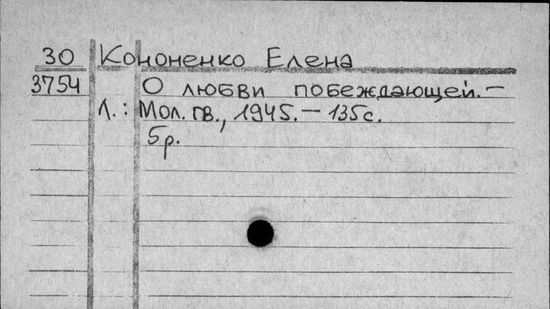 30 Кононенко Елена
3754 О любви побеждающей.—
Л.: Мол. гв., 1945.— 135с.
5р.